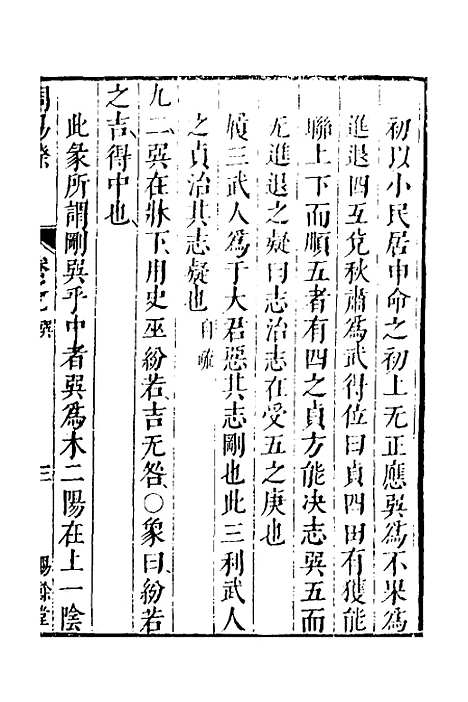 初以小民居申命之初上无正應巽為不果為
進退四互兌秋肅為武得位曰貞四田有獲能
聯上下而順五者有四之貞方能决志巽五而
无進退之疑曰志治志在受五之庚也
三武人為于大君惡其志剛也此三利武人
之貞治其志疑也 自疏
九二巽在牀下用史巫紛若吉无咎○象曰紛若
之吉得中也
此彖所謂剛巽乎中者巽為木二陽在上一陰
周易 巽 三 堂